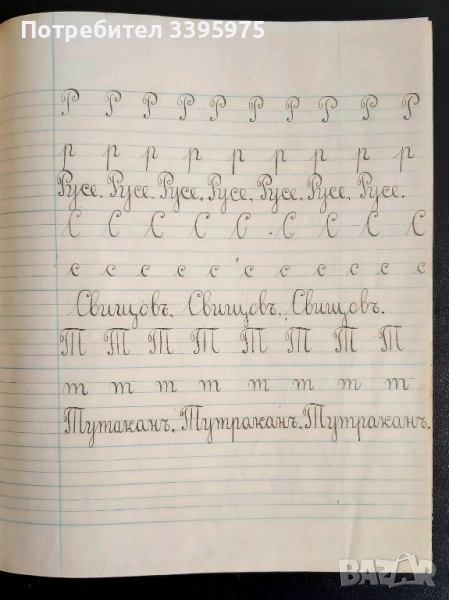 Потребител 3395975
Р Р Р Р Р Р Р Р Р Р
р р р р р р р р р
Русе. Русе. Русе. Русе. Русе. Русе. Русе.
С С С С С . С С С С
с с с с с с с с с с с
Свищовъ. Свищовъ. Свищовъ.
Т Т Т Т Т Т Т Т
т т т т т т т т
Тутаканъ. Тутраканъ. Тутраканъ.
BAZAR